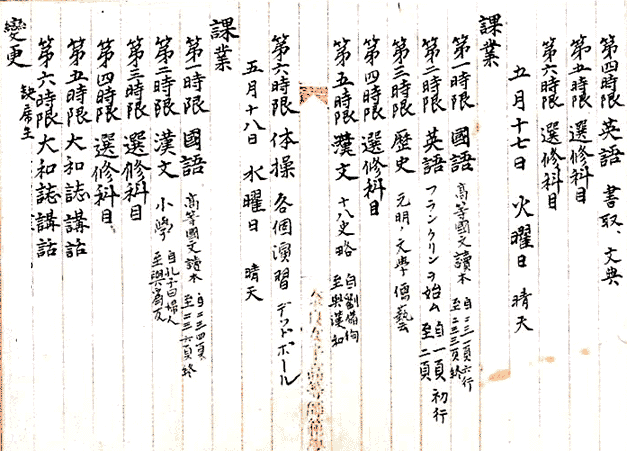 第四時限 英語 書取、文典
第五時限 選修科目
第六時限 選修科目
五月十七日 火曜日 晴天
課業
第一時限 國語 高等國文讀本 自二二一頁六行 至二二三頁終
第二時限 英語 フランクリンヲ始ム 自一頁初行 至二頁
第三時限 歴史 元明ノ文學 僧藝
第四時限 選修科目
第五時限 漢文 十八史略 自劉備徇 至與漢和
第六時限 体操 各個演習 デッドボール
五月十八日 水曜日 晴天
課業
第一時限 國語 高等國文讀本 自二三四頁 至二三六頁終
第二時限 漢文 小學 自孔子曰婦人
第三時限 選修科目
第四時限 選修科目
第五時限 大和誌講話
第六時限 大和誌講話
變更
缺席生